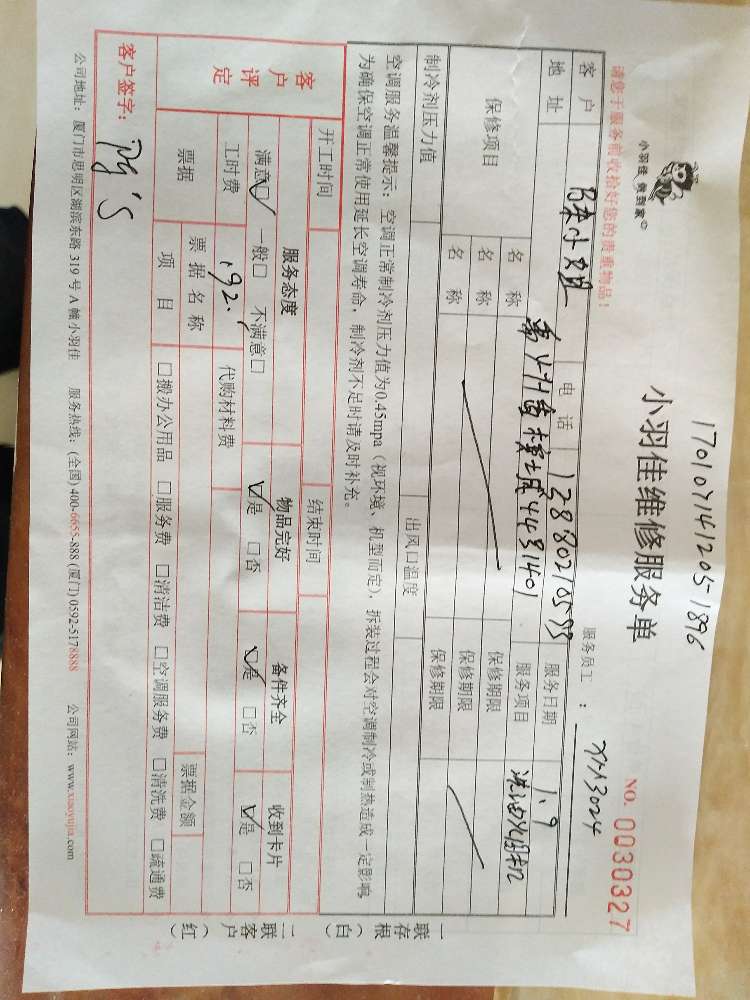 17010714120518​96
小羽佳 做到家
小羽佳维修服务单
NO. 0030327
请您于服务前收拾好您的贵重物品！
服务员工：XM3024
客户 小姐 电话 12880210573 服务日期 1.9
地址 4481401 服务项目 洗油烟机
保修项目 名称 保修期限
名称 保修期限
名称 保修期限
制冷剂压力值 出风口温度
空调服务温馨提示：空调正常制冷剂压力值为0.45mpa（视环境、机型而定），拆装过程会对空调制冷或制热造成一定影响，
为确保空调正常使用延长空调寿命，制冷剂不足时请及时补充。
开工时间 结束时间
客户评定 服务态度 物品完好 备件齐全 收到卡片
满意□ 一般□ 不满意□ □是 □否 □是 □否 □是 □否
工时费 192. 代购材料费
票据 票据名称 票据金额
项目 □搬办公用品 □服务费 □清洁费 □空调服务费 □清洗费 □疏通费
客户签字：
公司地址：厦门市思明区湖滨东路 319 号 A 幢小羽佳 服务热线：(全国) 400-6655-888 (厦门) 0592-5178888 公司网站：www.xiaoyujia.com
一联存根（白）
二联客户（红）